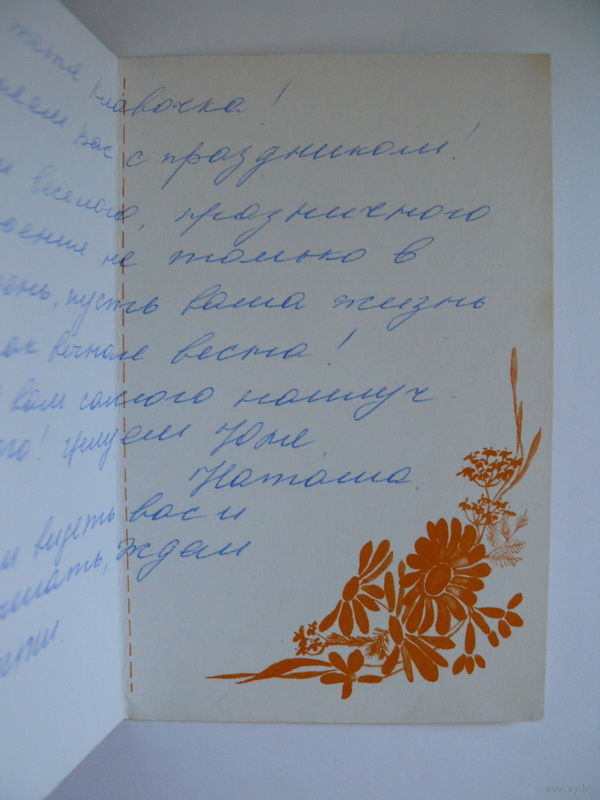 тетя Клавочка!
вас с праздником!
веселого, празничного
не только в
день, пусть ваша жизнь
как вечноле весна!
вам самого наилуч
го! Целуем Юля
Наташа.
видеть вас и
ждем
www.ay.by